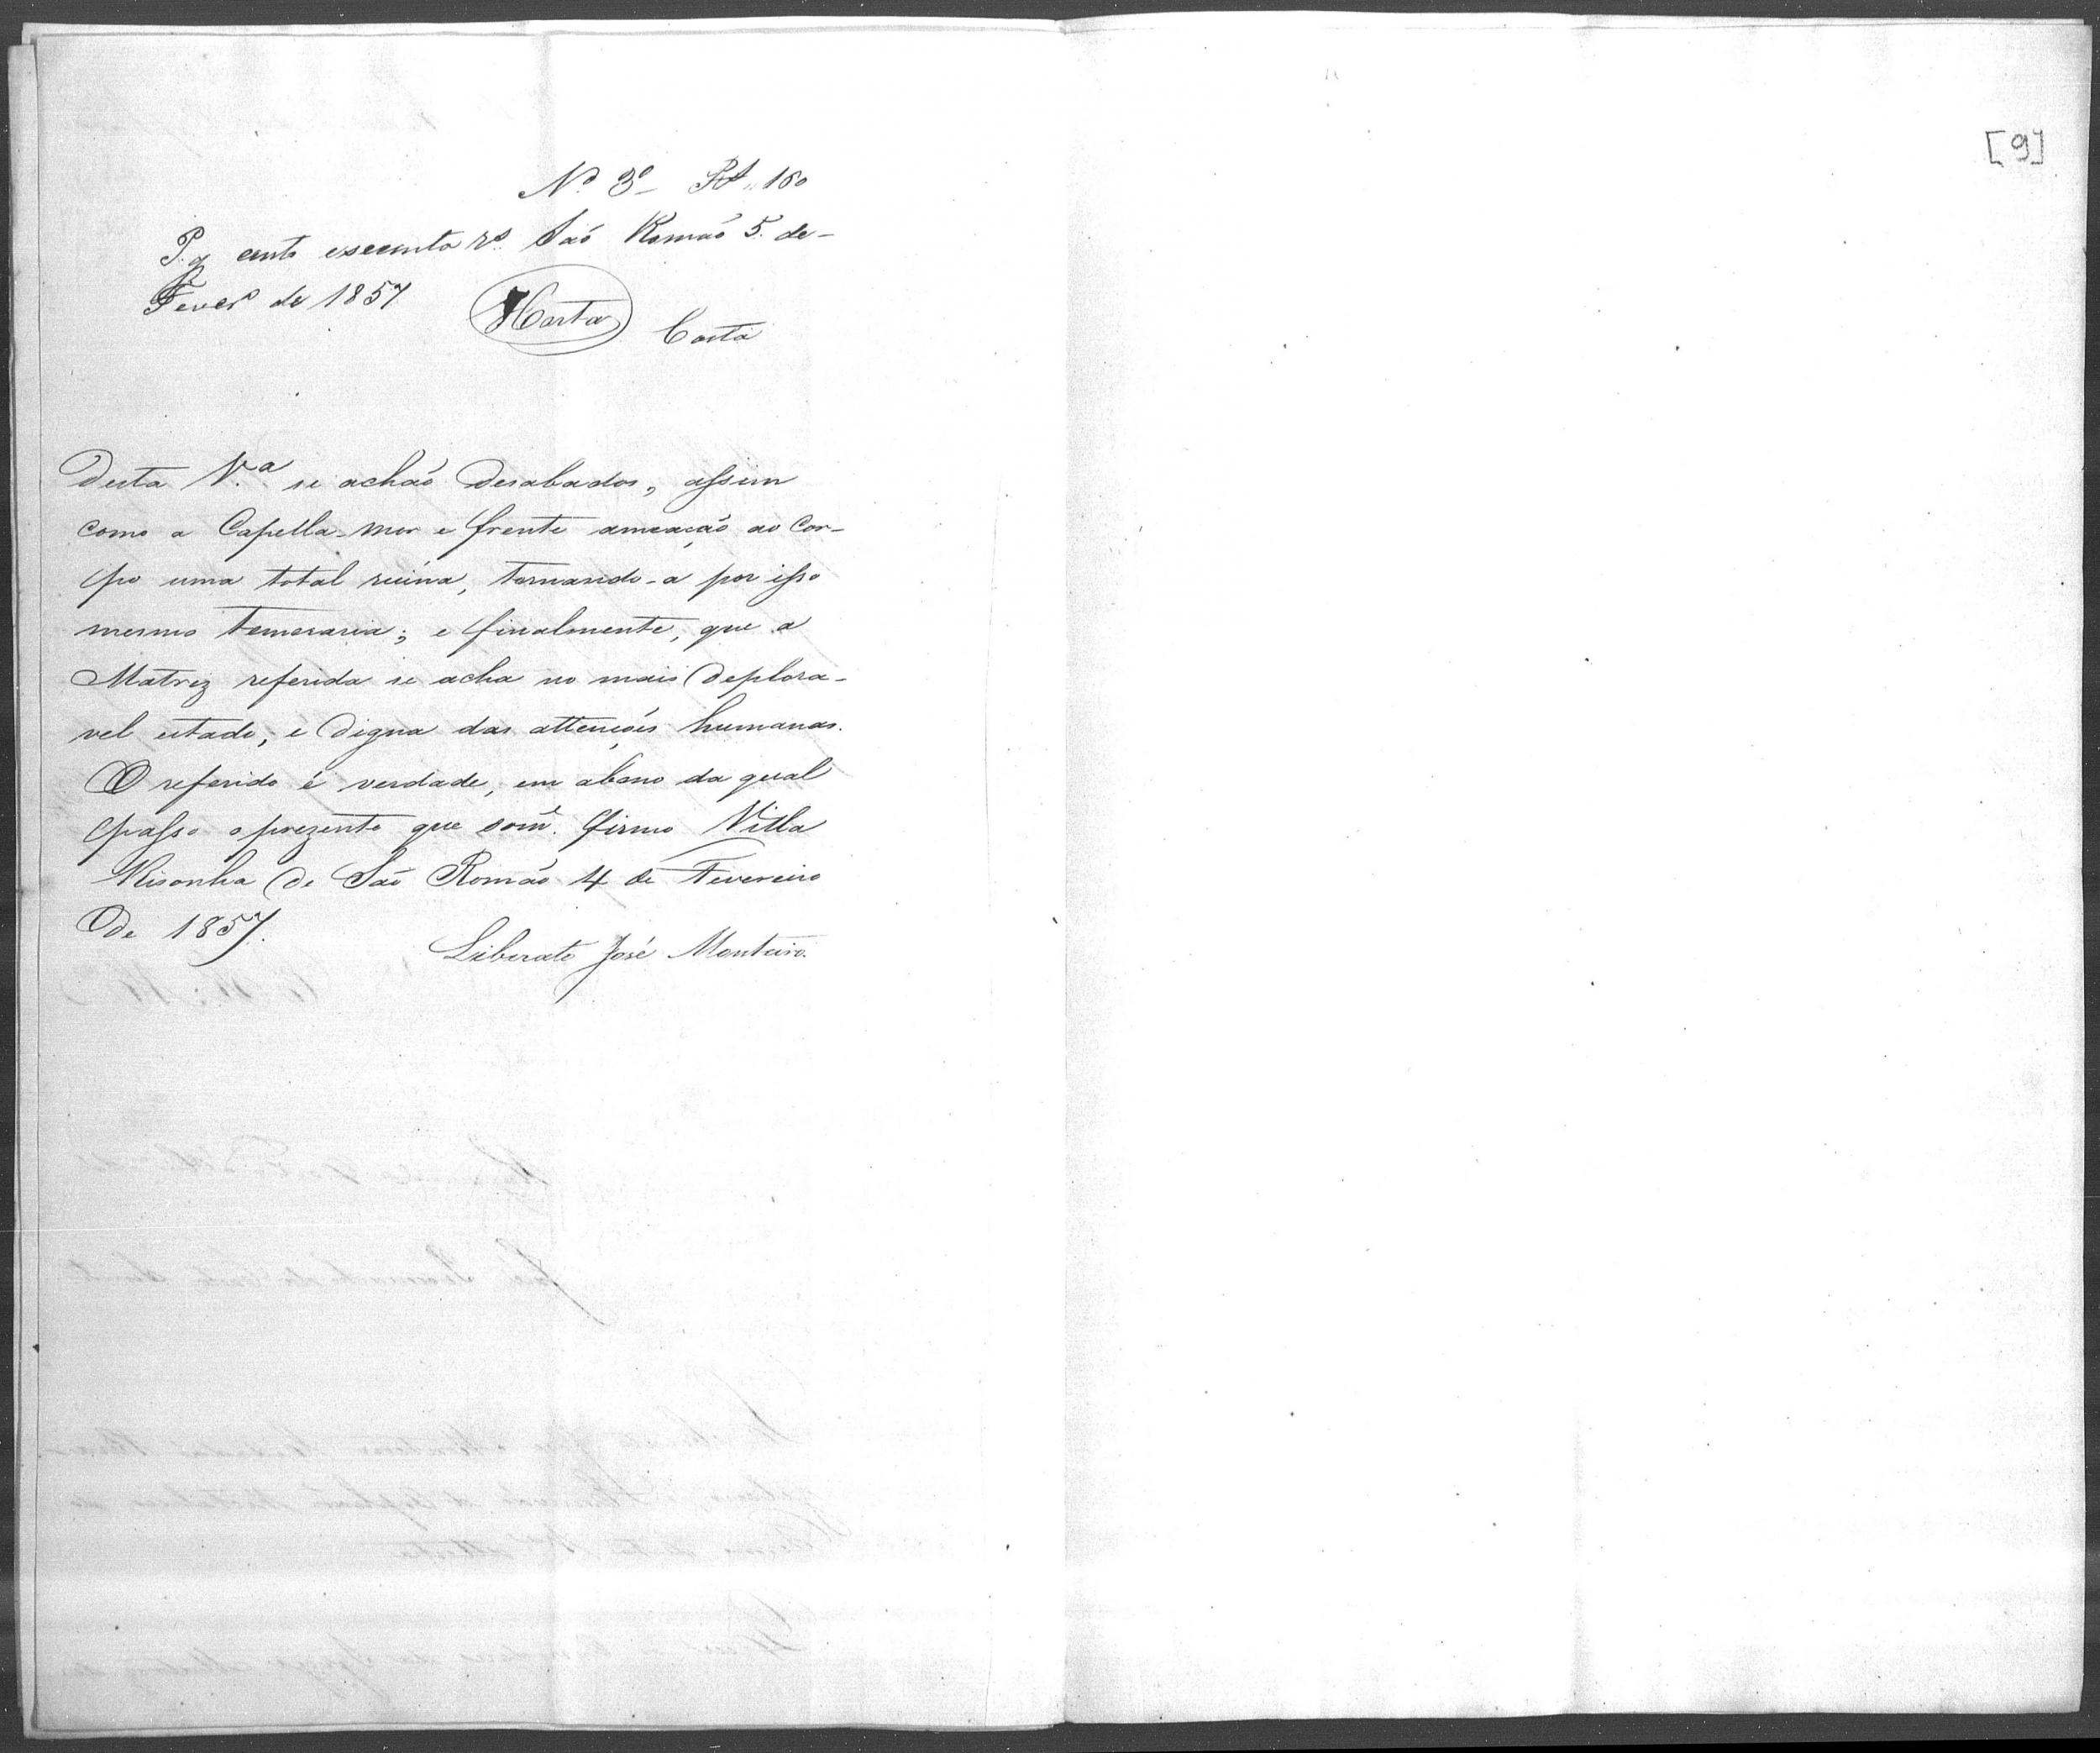 Nº 3º — Rs 160
P. g cento esecenta rs. Saõ Romaõ 5. de-
Fever.º de 1857
Horta Costa
Desta V.ª se achaõ desabados, assim
como a Capella-mor e frente ameaçaõ ao Cor-
po uma total ruina, tornando-a por isso
mesmo temeraria; e finalmente, que a
Matriz referida se acha no mais deplora-
vel estado, e digna das attençoẽs humanas.
O referido é verdade, em abono da qual
passo o prezente que som.e firmo Villa
Risonha de Saõ Romaõ 4 de Fevereiro
de 1857.
Liberato José Monteiro.
[9]